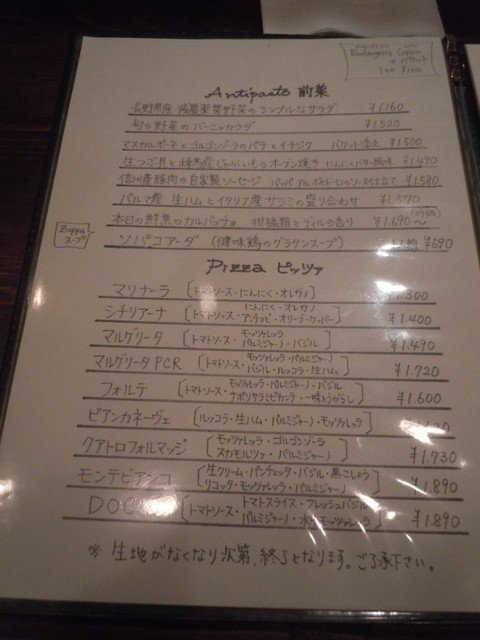 Boulangerie
バケット
Antipasto 前菜
長野県産 減農薬葉野菜のシンプルなサラダ ¥1.160
旬の野菜のバーニャカウダ ¥1520
マスカルポーネとゴルゴンゾーラのパテとイチジク バケット添え ¥1.500
生つぶ貝と練馬産じゃがいものオーブン焼き にんにくバター風味 ¥1.490
信州産豚肉の自家製ソーセージ パッパアルポモドロのソース仕立て ¥1.580
パルマ産 生ハムとイタリア産サラミの盛り合わせ ¥1.590
本日の鮮魚のカルパッチョ 柑橘類とディルの香り ¥1.690〜
Zuppa スープ
ソパコアーダ (健味鶏のグラタンスープ) ¥690
Pizza ピッツァ
マリナーラ [トマトソース・にんにく・オレガノ] ¥1.300
シチリアーナ [トマトソース・にんにく・オレガノ・アンチョビ・オリーブ・ケーパー] ¥1.400
マルゲリータ [トマトソース・モッツァレッラ・パルミジャーノ・バジル] ¥1.490
マルゲリータPCR [トマトソース・モッツァレッラ・パルミジャーノ・バジル・ルッコラ・生ハム] ¥1.720
フォルテ [トマトソース・モッツァレッラ・パルミジャーノ・バジル・ナポリサラミピカンテ・一味とうがらし] ¥1.600
ビアンカネーヴェ [ルッコラ・生ハム・パルミジャーノ・モッツァレッラ]
クアトロフォルマッジ [モッツァレッラ・ゴルゴンゾーラ・スカモルツァ・パルミジャーノ] ¥1.730
モンテビアンコ [生クリーム・パンチェッタ・バジル・黒こしょう・リコッタ・モッツァレッラ・パルミジャーノ] ¥1.890
DOC [トマトソース・トマトスライス・フレッシュバジル・パルミジャーノ・水牛モッツァレッラ] ¥1.890
※ 生地がなくなり次第、終了となります。ご了承下さい。